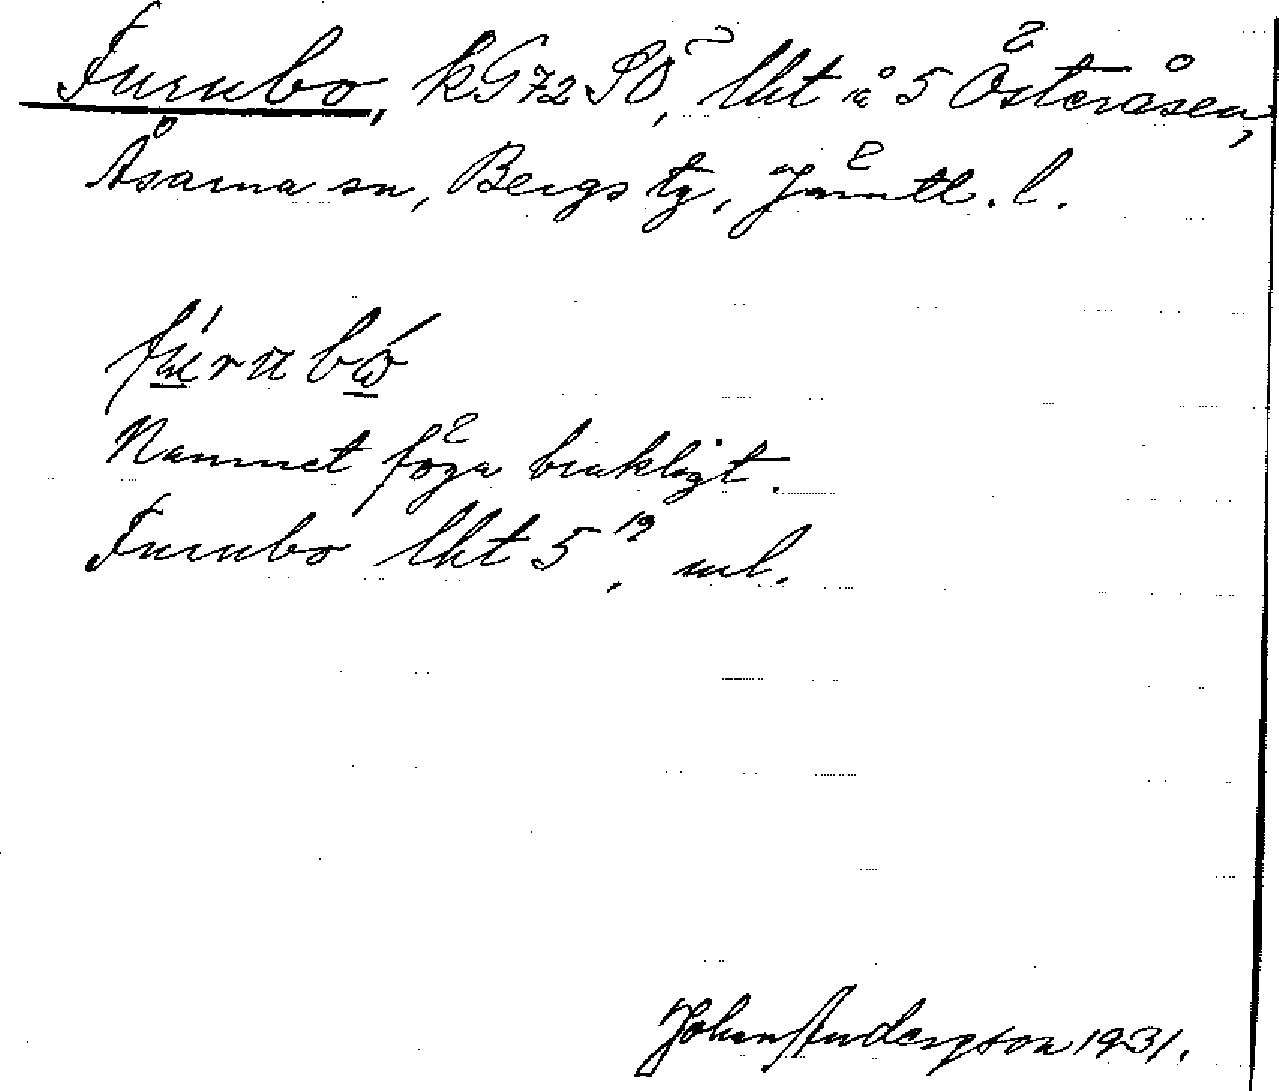 Furubo, kG72SÖ, lht å 5 Österåsen,
Åsarna sn, Bergs tg, Jämtl. l.
fu̲rubo̲
Namnet föga brukligt.
Furubo lht 5¹⁹, ml.
Johan Anderson 1931.